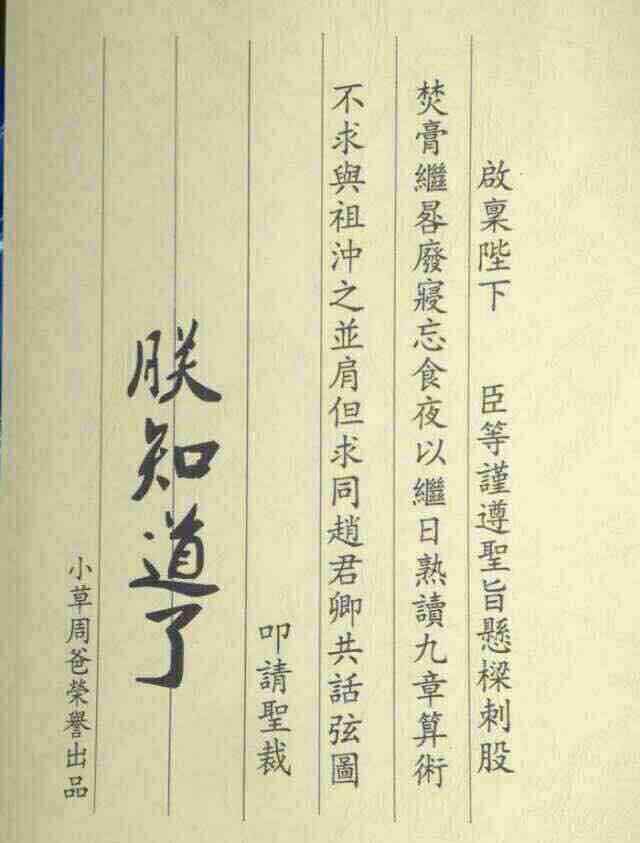 啟稟陛下　臣等謹遵聖旨懸樑刺股
焚膏繼晷廢寢忘食夜以繼日熟讀九章算術
不求與祖沖之並肩但求同趙君卿共話弦圖
叩請聖裁
朕知道了
小草周爸榮譽出品